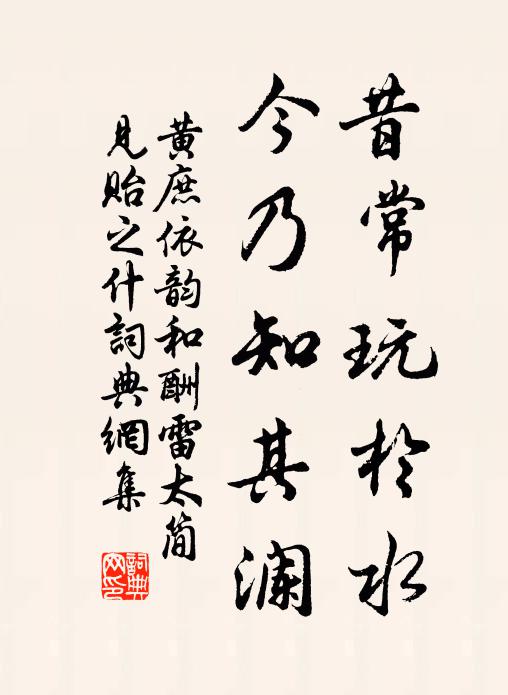 昔常玩於水
今乃知其澜
黄庶依韵和酬雷太简
见贻之什詞典網集
詞典
网印